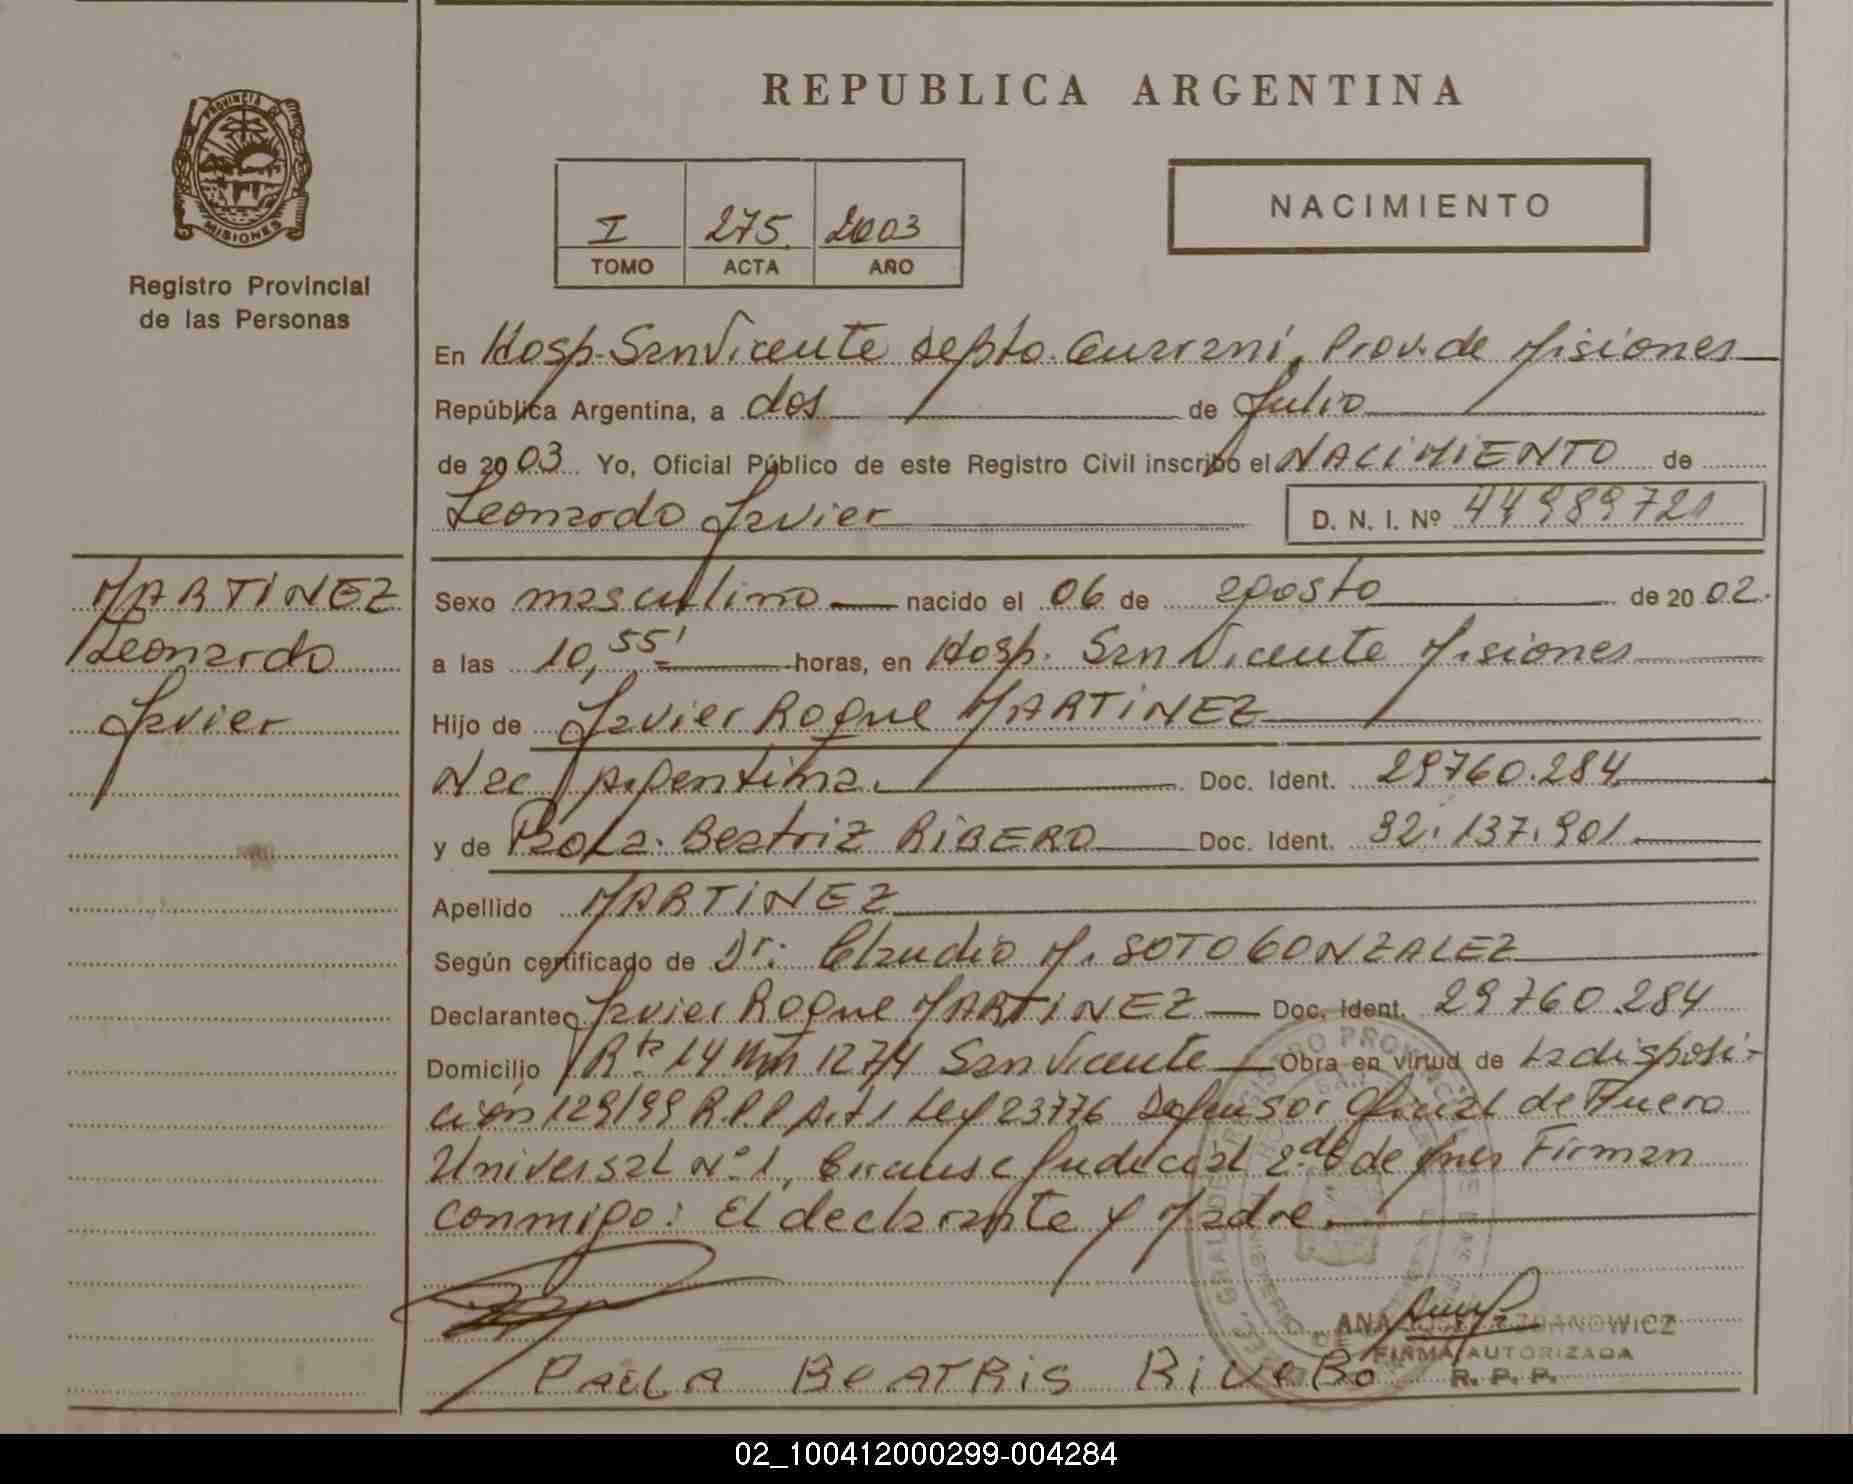 REPUBLICA ARGENTINA
PROVINCIA DE
MISIONES
Registro Provincial
de las Personas
I 275. 2003
TOMO ACTA AÑO
NACIMIENTO
En Hosp. San Vicente depto. Guarani, Prov. de Misiones
República Argentina, a dos de Julio
de 2003 Yo, Oficial Público de este Registro Civil inscribo el NACIMIENTO de
Leonardo Javier D. N. I. Nº 44989721
MARTINEZ
Leonardo
Javier
Sexo masculino nacido el 06 de agosto de 2002.
a las 10,55' horas, en Hosp. San Vicente Misiones
Hijo de Javier Roque MARTINEZ
Nac Argentina. Doc. Ident. 29760.284
y de Paola. Beatriz RIBERO Doc. Ident. 32.137.901.
Apellido MARTINEZ
Según certificado de Dr. Claudio M. SOTO GONZALEZ
Declarante Javier Roque MARTINEZ Doc. Ident. 29760.284
Domicilio Rta 14 Km 1274 San Vicente Obra en virtud de la disposi-
ción 129/99 R.P.P Art 1 Ley 23776 Defensor Oficial de Fuero
Universal Nº 1, Judicial 2da de Firman
conmigo: El declarante y Madre.
ANA ZDANOWICZ
FIRMA AUTORIZADA
R. P. P.
PAULA BEATRIS RIVERO
02_100412000299-004284